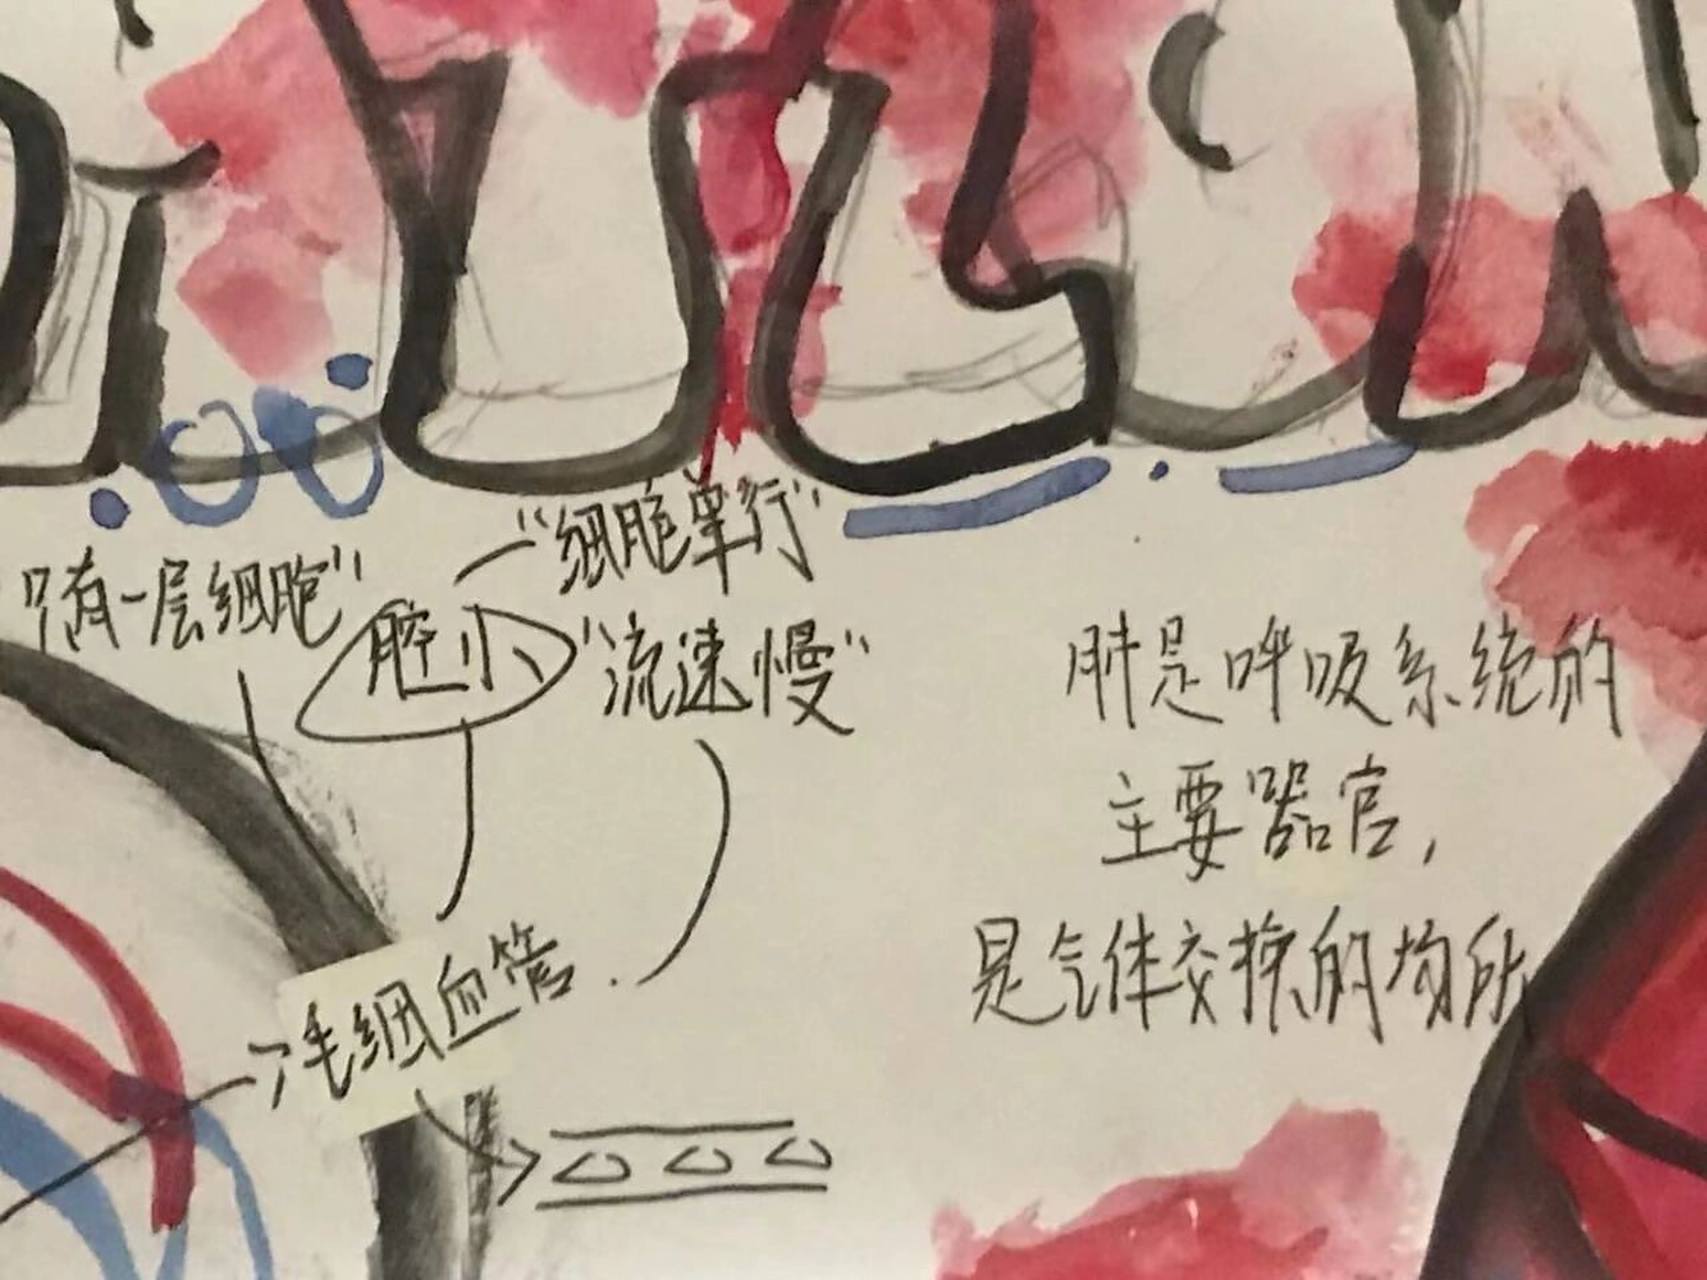 “细胞单行”
“只有一层细胞”
腔小
“流速慢”
毛细血管.
肺是呼吸系统的
主要器官,
是气体交换的场所